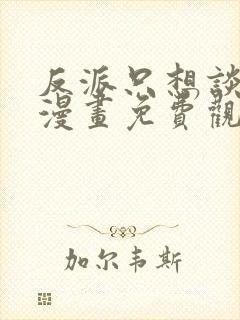 反派只想談
漫畫免費觀
加尔韦斯